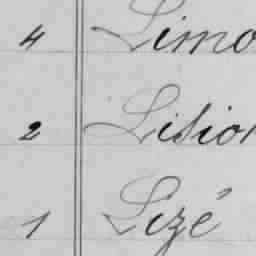 4 Limo
2 Lision
1 Lizé